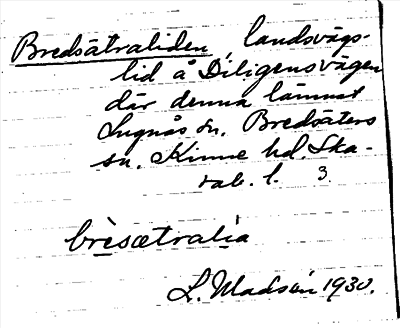 Bredsätraliden, landsvägs-
lid å Diligensvägen
där denna lämnat
Lugnås sn. Bredsäters
sn. Kinne hd. Ska-
rab. l. 3
brèsætralia
L. Madsén 1930.